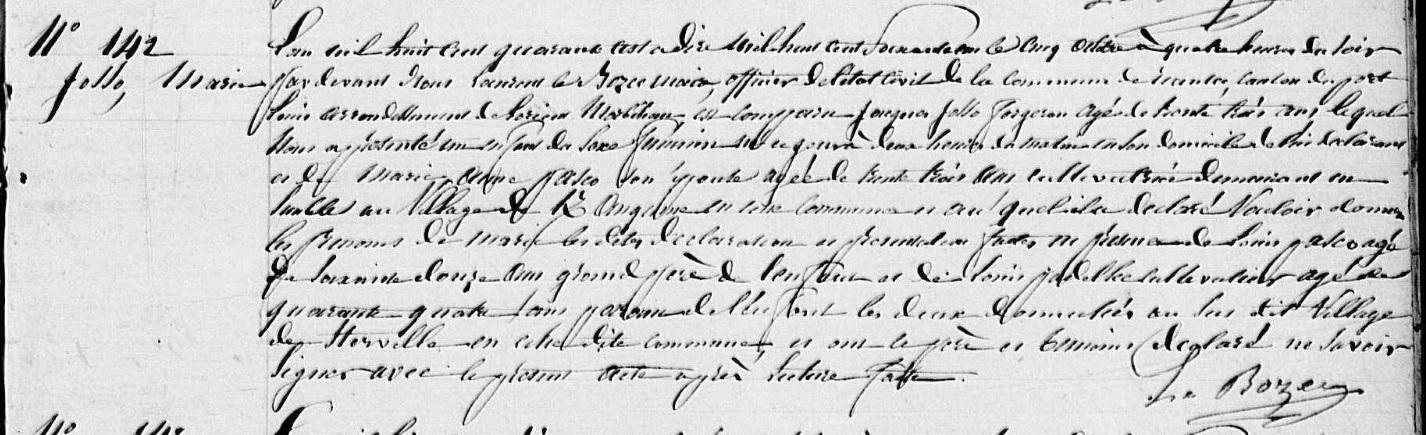 N° 142
Josso, Marie
L'an mil huit cent quarante cest a dire Mil huit cent Soixante un le Cinq Octobre à quatre heures du Soir
Pardevant Nous Laurent le Bozec Maire, officier de l'état Civil de la Commune de Riantec, Canton du port
Louis arrondissement de Lorient Morbihan est comparu Jacques Josso forgeron agé de trente trois ans lequel
Nous a présenté un enfant du Sexe féminin né ce jour à deux heures du matin en Son domicile de lui déclarant
et de Marie anne pasco Son épouse agée de trente trois ans cultivatrice demeurant en
au Village de en cette Commune et auquel il a déclaré Vouloir donner
les prenoms de Marie les dites déclaration et présentation faites en présence de Louis pasco agé
de Soixante douze ans grand père de l'enfant et de Louis cultivateur agé de
quarante quatre ans parrain de l'enfant les deux domiciliés au Sus dit Village
de en cette dite commune, et ont le père et témoins déclaré ne Savoir
Signer avec le présent acte après lecture faite.
Le Bozec
N°